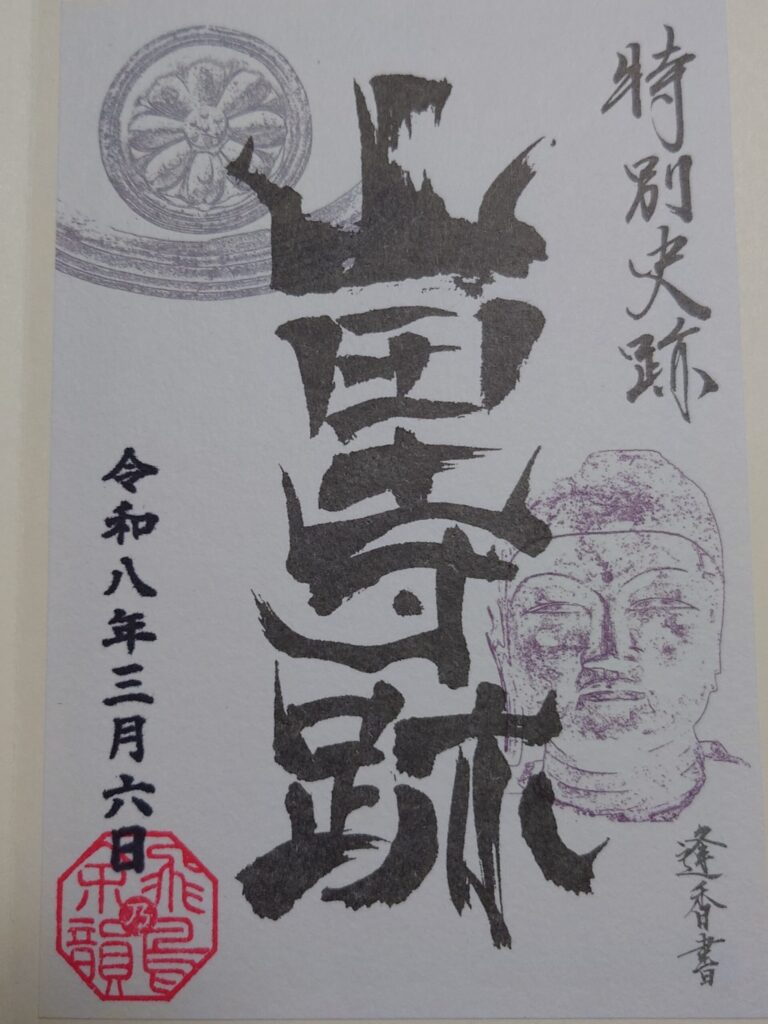 特別史跡
山田寺跡
逢香書
令和八年三月六日
飛鳥乃余韻